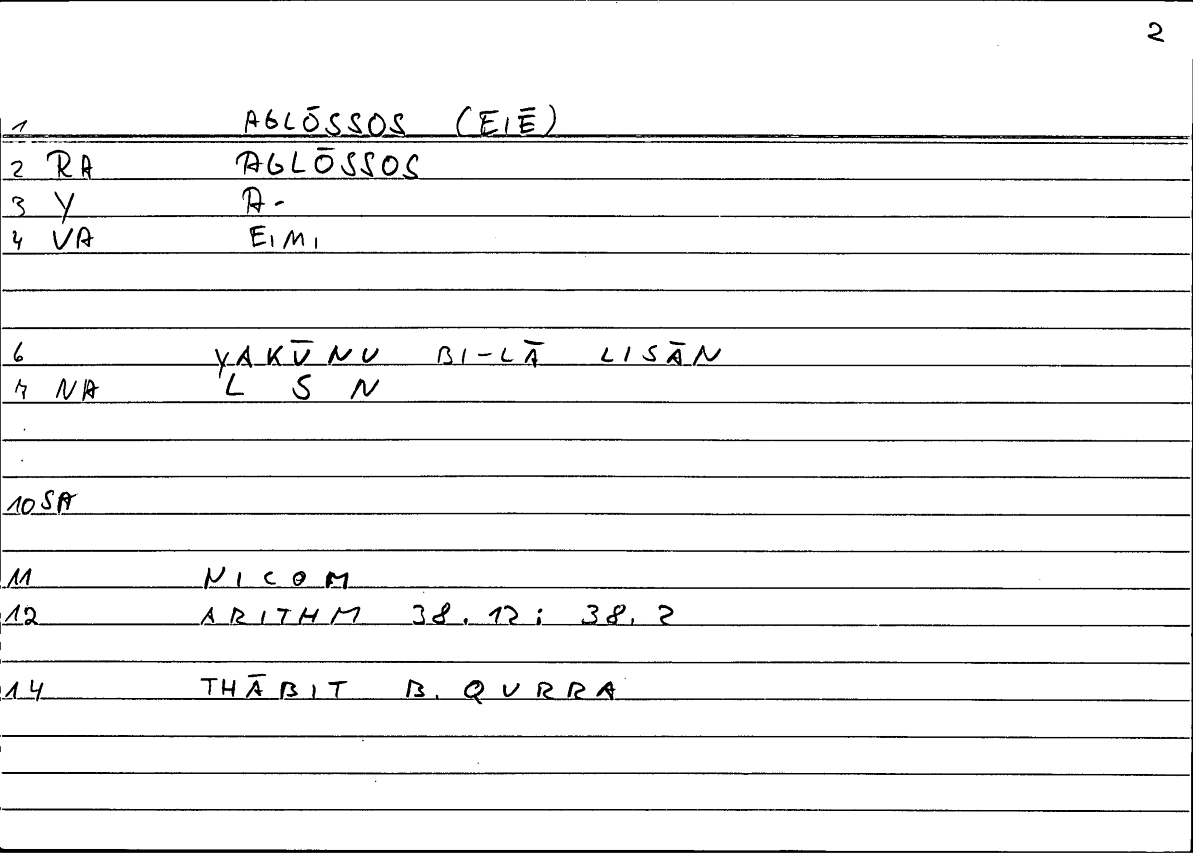 2
1 AGLŌSSOS (EIĒ)
2 RA AGLŌSSOS
3 Y A-
4 VA EIMI
6 YAKŪNU BI-LĀ LISĀN
7 NA L S N
10 SA
11 NICOM
12 ARITHM 38.12; 38.2
14 THĀBIT B. QURRA